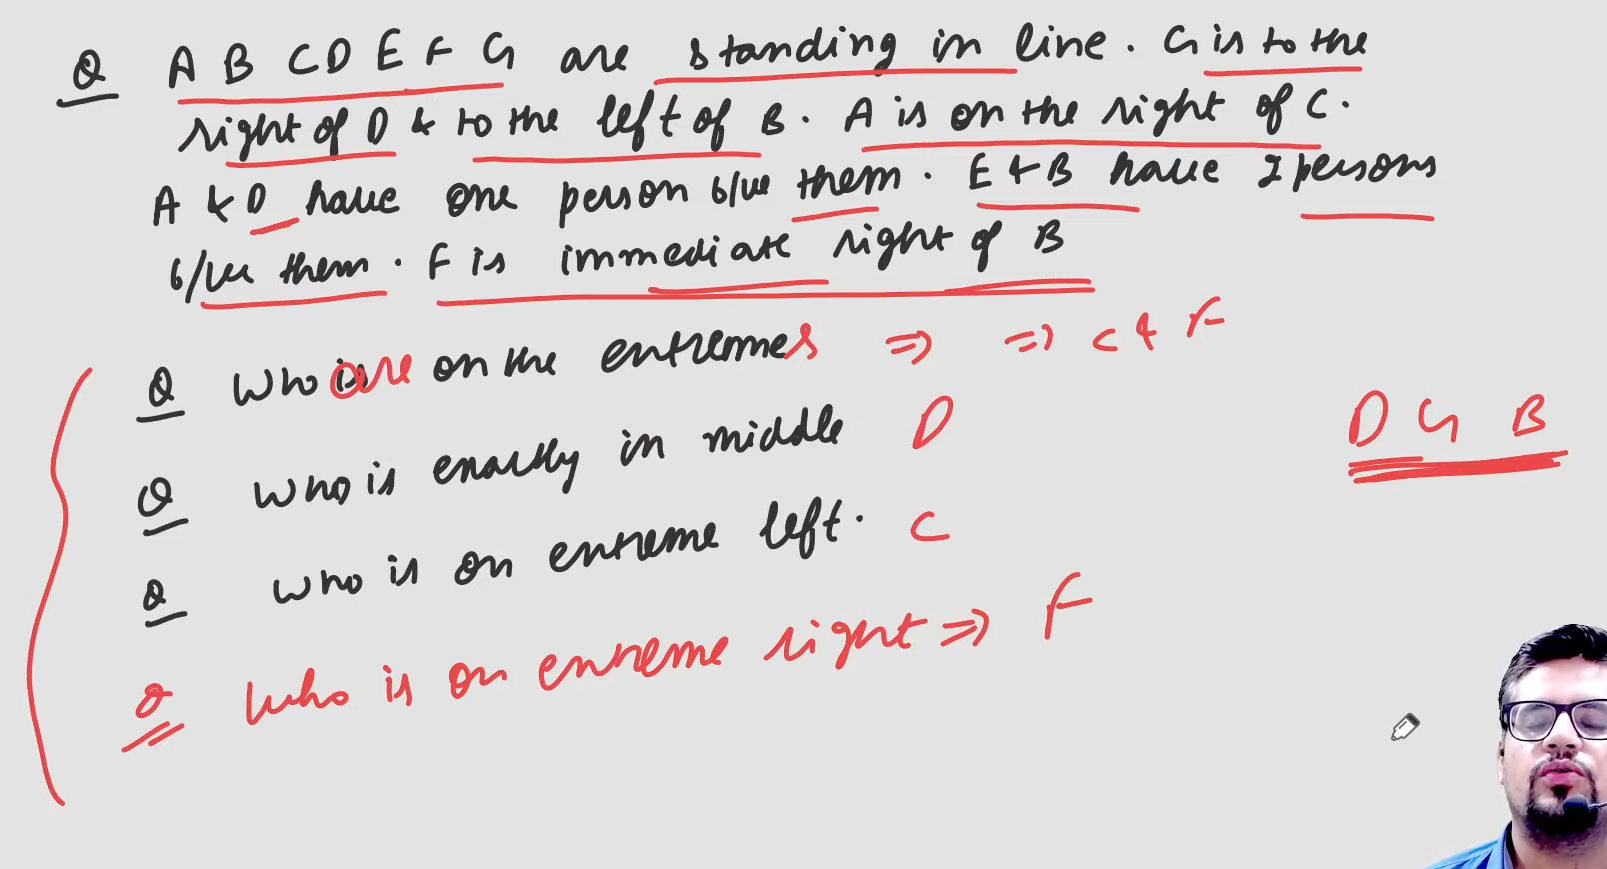 Q A B C D E F G are standing in line. G is to the
right of D & to the left of B. A is on the right of C.
A & D have one person b/w them. E & B have 2 persons
b/w them. F is immediate right of B
Q Who are on the extremes => => C & F
Q Who is exactly in middle D
D G B
Q Who is on extreme left. C
Q Who is on extreme right => F